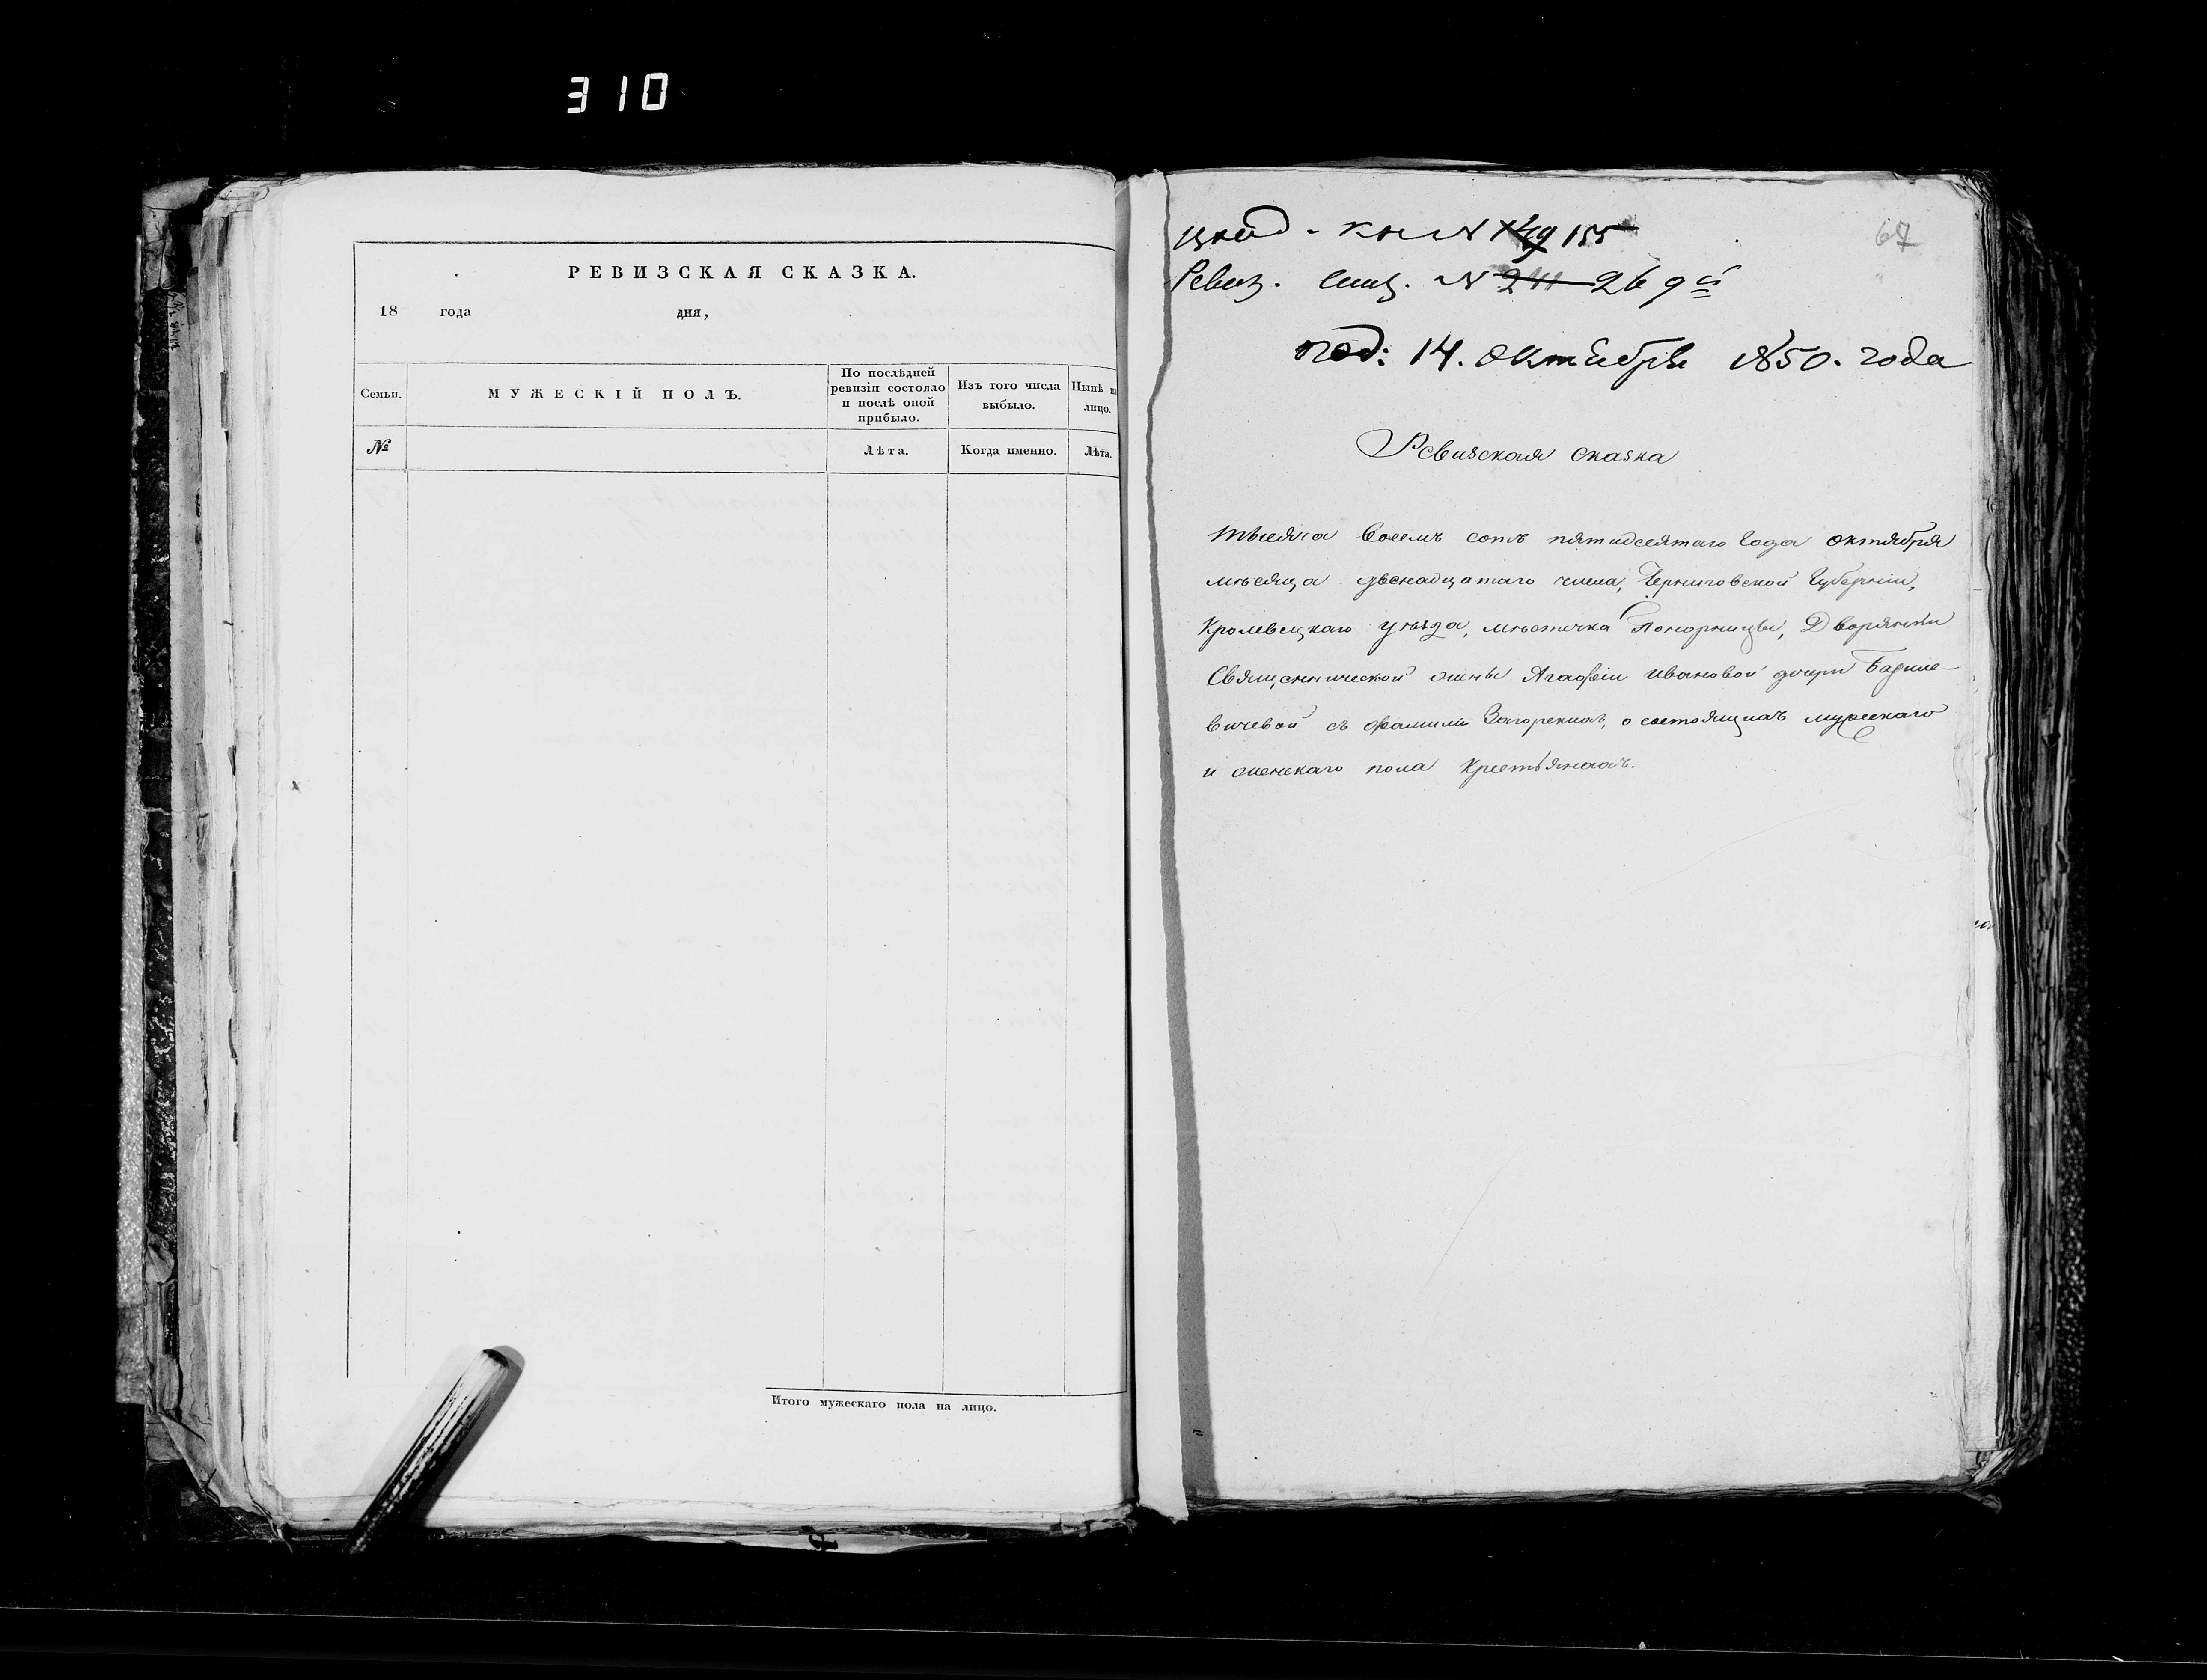 310
РЕВИЗСКАЯ СКАЗКА.
18 года дня,
Семьи.
МУЖЕСКІЙ ПОЛЪ.
По послѣдней ревизіи состояло и послѣ оной прибыло.
Изъ того числа выбыло.
Нынѣ на лицо.
№
Лѣта.
Когда именно.
Лѣта.
Итого мужескаго пола на лицо.
67
кн № 149 155
Ревиз. № 211 269й
под: 14. Октября 1850. года
Ревизская сказка
тысяча восемъ сотъ пятидесятаго года октября
мѣсяца двенадцатаго числа, Черниговской Губерніи,
Кролевецкаго уѣзда, мѣстечка Понорницы, Дворянки
Священнической жены Агафіи Ивановой дочери
съ фамиліи о состоящихъ мужескаго
и женскаго пола крестьянахъ.